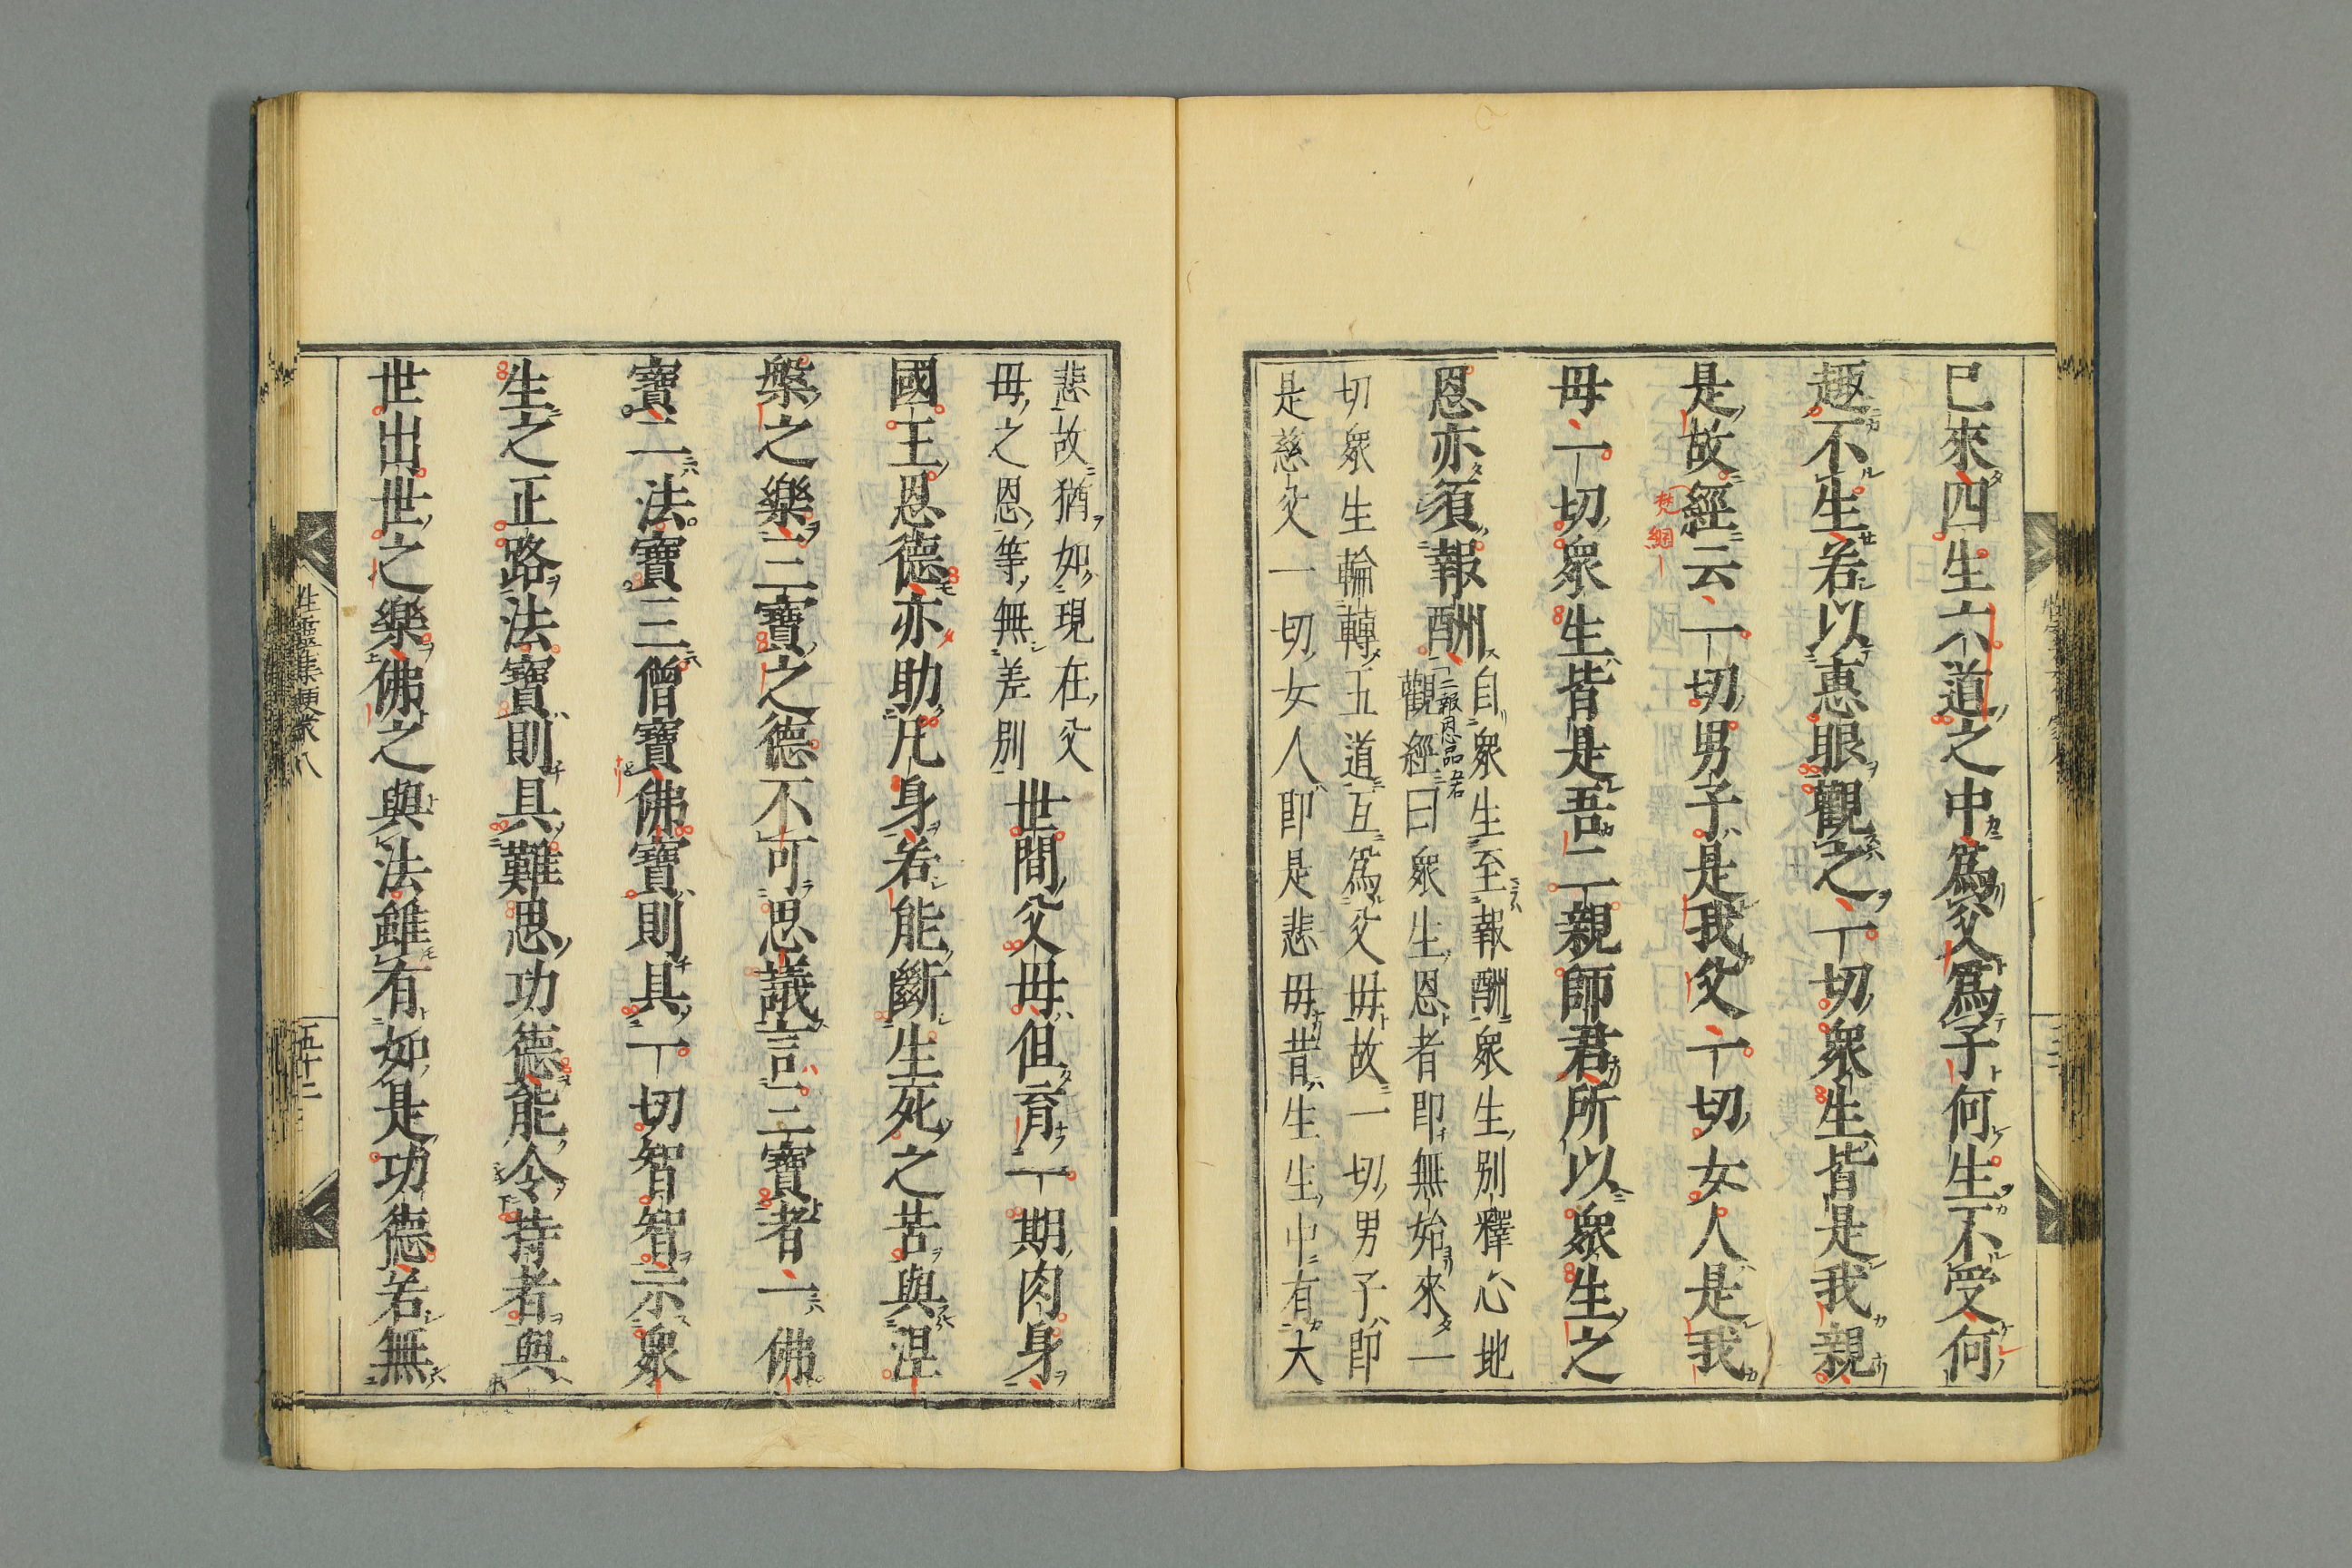 已來四生六道之中爲父爲子何生不受何
趣不生若以惠眼觀之一切衆生皆是我親
是故經云一切男子是我父一切女人是我
梵網
母一切衆生皆是吾二親師君所以衆生之
恩亦須報酬
自衆生至報酬衆生別釋心地
觀經二報恩品曰衆生恩者即無始來一
切衆生輪轉五道互爲父母故一切男子即
是慈父一切女人即是悲母昔生生中有大
悲故猶如現在父
母之恩等無差別
世間父母但育一期肉身
國王恩德亦助凡身若能斷生死之苦與涅
槃之樂三寶之德不可思議言三寶者一佛
寶二法寶三僧寶佛寶則具一切智智示衆
生之正路法寶則具難思功德能令持者與
世出世之樂佛之與法雖有如是功德若無
性靈集便蒙八
五十二